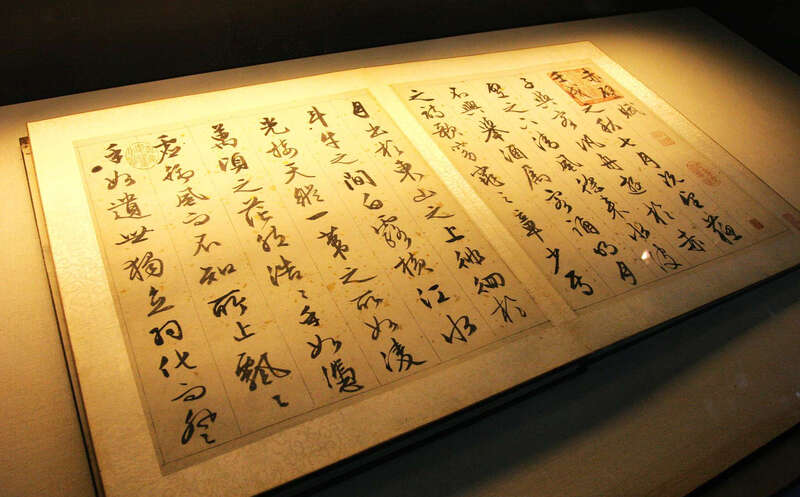 赤壁賦
壬戌之秋七月既望蘇
子與客汎舟遊於赤
壁之下清風徐來水波
不興舉酒屬客誦明月
之詩歌窈窕之章少焉
月出於東山之上徘徊於
斗牛之間白露橫江水
光接天縱一葦之所如凌
萬頃之茫然浩〻乎如憑
虛御風而不知所止飄〻
乎如遺世獨立羽化而登